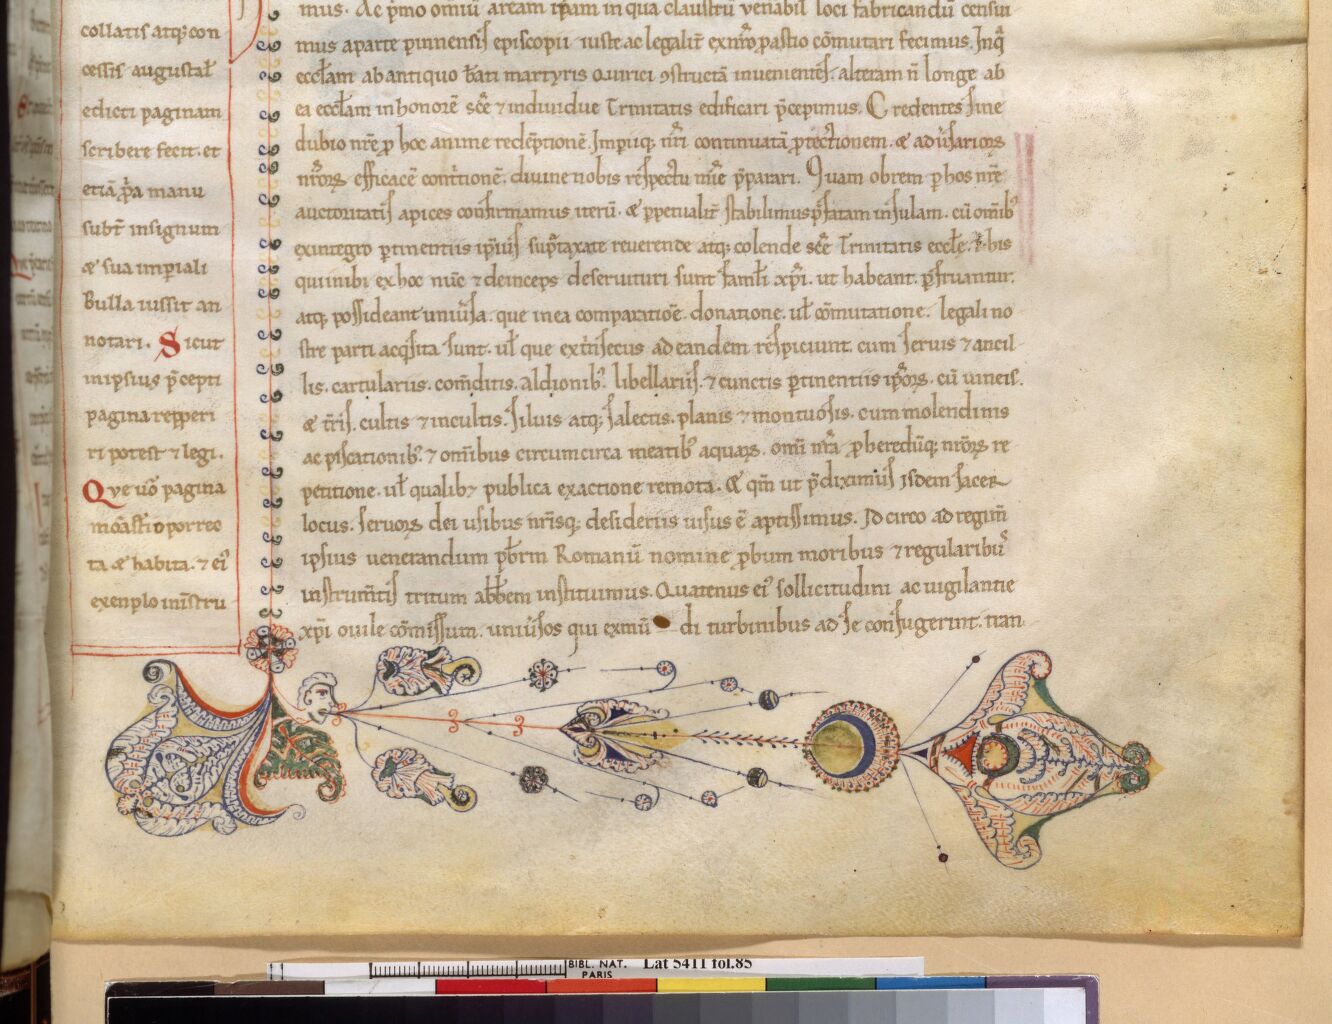 collatis atq; con
cessis augustal̃
edicti paginam
scribere fecit. et
etiã p̃pa manu
subt̃ insignum
& sua imp̃iali
Bulla iussit an
notari. Sicut
inipsius p̃cepti
pagina repperi
ri potest ⁊ legi.
Que uõ pagina
ta & habita. ⁊ ei᾽
exenplo
mus. Ac p̃mo omiũ aream ip̃am in qua claustrũ uenabil̃ loci fabricandũ censui
mus aparte pinnensis episcopii iuste ac legalit̃ exnr̃o pastio cõmutari fecimus. Inq̃
eccl̃am ab antiquo b̃ati martyris Quirici ꝯstructã inuenientes. alteram ñ longe ab
ea eccl̃am inhonorẽ sc̃e ⁊ indiuidue Trinitatis edificari p̃cepimus. Credentes sine
dubio nr̃e ꝓ hoc anime redẽptionẽ. Impiiq; nr̃i continuatã ꝓtectionem. & aduͥsariorꝝ
nr̃orꝝ efficacẽ cont̃tionẽ. diuine nobis respectu p̃parari. Quam obrem ꝑ hos nr̃e
auctoritatis apices confirmamus iterũ. & ꝑpetualit̃ stabilimus p̃fatam insulam. cũ omib᾽
exintegro ꝑtinentiis ip̃ius sup̃taxate reuerende atq; colende sc̃e Trinitatis eccl̃e.
quiinibi ex hoc nũc ⁊ deinceps deseruituri sunt famĩli xp̃i. ut habeant. ꝑfruantur.
atq; possideant uniuͥsa. que inea comparatiõe. donatione. ul̃ cõmutatione. legali no
stre parti acq̃sita sunt. ul̃ que extͥnsecus adeandem respiciunt. cum seruis ⁊ ancil
lis. cartulariis. com̃ditis. aldionib᾽. libellariis. ⁊ cunctis ꝑtinentiis ip̃orꝝ. cũ uineis.
& tr̃is. cultis ⁊ incultis. siluis atq; salectis. planis ⁊ montuosis. cum molendinis
ac piscationib᾽. ⁊ om̃ibus circumcirca meatib᾽ aquarꝝ. om̃i nr̃a ꝓheredũq; nr̃orꝝ re
petitione. ul̃ qualib; publica exactione remota. & qm̃ ut p̃diximus isdem sacer
locus. seruorꝝ dei usibus nr̃isq; desideriis uisus ẽ aptissimus. Idcirco ad regim̃
ipsius uenerandum pb̃rm Romanũ nomine ꝓbum moribus ⁊ regularibus
instrum̃tis tritum abb̃em instituimus. Quatenus ei᾽ sollicitudini ac uigilantie
xp̃i ouile cõmissum. uniuͥsos qui exmũdi turbinibus ad se confugerint. tran
BIBL. NAT. PARIS Lat 5411 fol.85